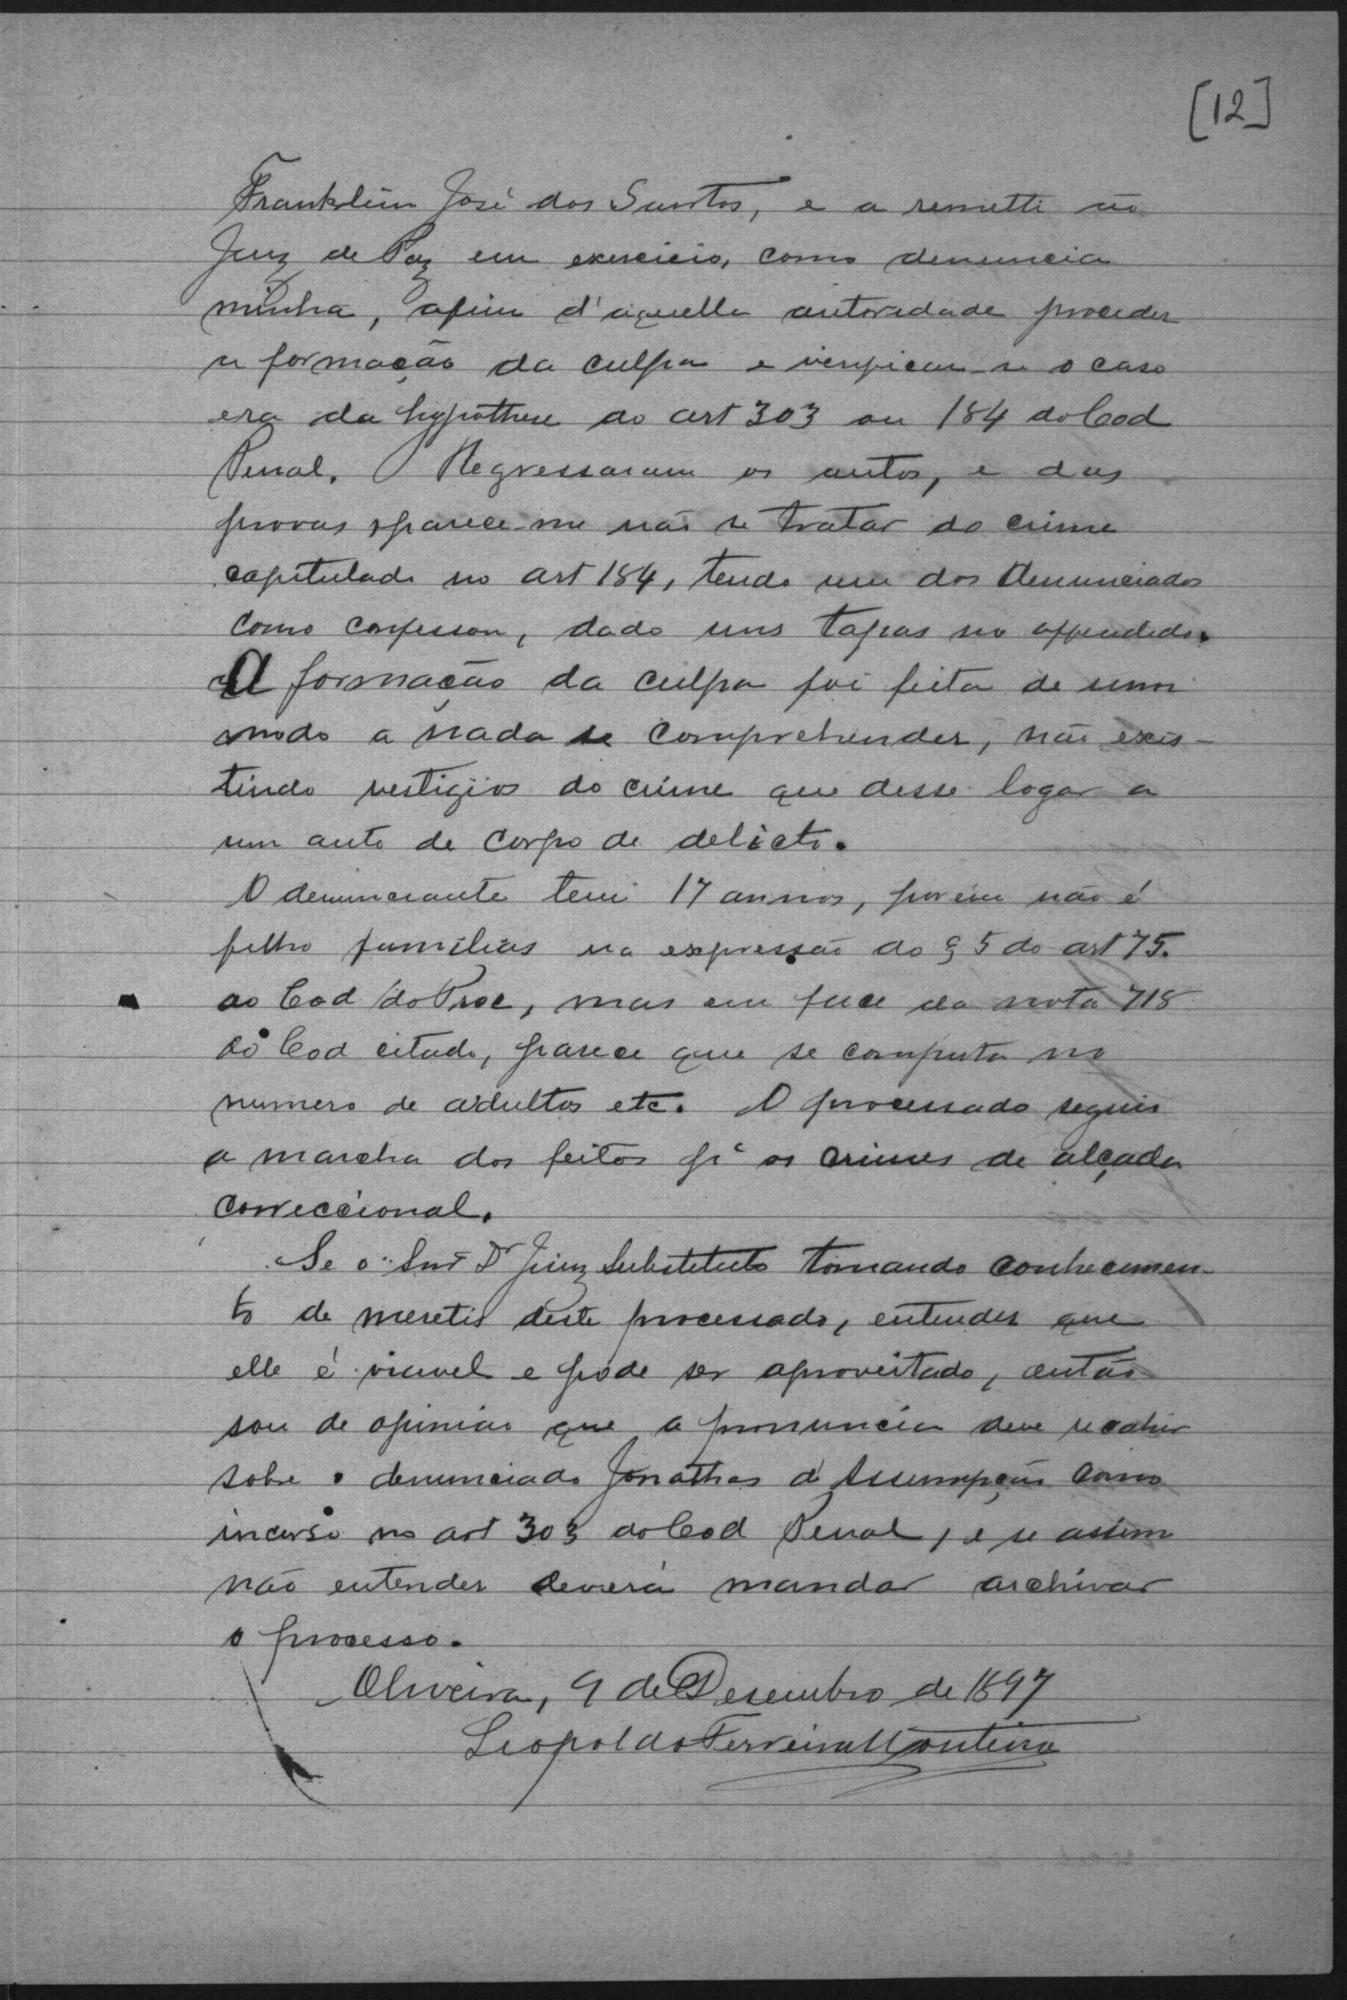 [12]
Franklin José dos Santos, e a remetti ao
Juiz de Paz em exercicio, como denuncia
minha, afim d'aquella autoridade proceder
a formação da culpa e verificar-se o caso
era da hypothese do art 303 ou 184 do Cod
Penal. Regressaram os autos, e das
provas parece-me não se tratar do crime
capitulado no art 184, tendo um dos denunciados
como confessou, dado uns tapas no offendido.
A formação da culpa foi feita de um
modo a nada se comprehender, não exis-
tindo vestigios do crime que desse logar a
um auto de corpo de delicto.
O denunciante tem 17 annos, porém não é
filho familias na expressão do § 5 do art 75.
do Cod do Proc, mas em face da nota 718
do Cod citado, parece que se computa no
numero de adultos etc. O processado seguio
a marcha dos feitos pª os crimes de alçada
correccional.
Se o Snr Dr Juiz Substituto tomando conhecimen-
to de meretis deste processado, entender que
elle é viavel e pode ser aproveitado, então
sou de opinião que a pronuncia deve recahir
sobre o denunciado Jonathas d'Assumpção como
incurso no art 303 do Cod Penal, e se assim
não entender deverá mandar archivar
o processo.
Oliveira, 9 de Desembro de 1897
Leopoldo Ferreira Monteiro